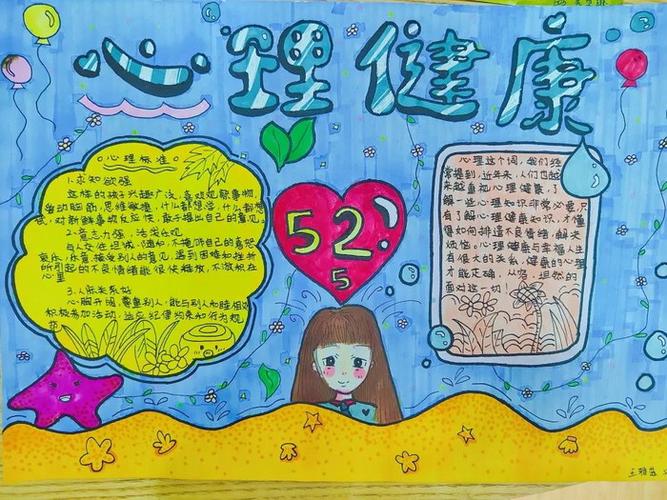 心理健康
心理标准
1.求知欲强
这样的孩子兴趣广泛,喜欢观察事物,
爱动脑筋,思维敏捷,什么都想学,什么都想
试,对新鲜事物反应快,敢于提出自己的意见。
2.意志力强,活泼乐观
与人交往坦诚、随和,不掩饰自己的喜怒
哀乐,乐意接受别人的意见,遇到困难和挫折
所引起的不良情绪能很快释放,不淤积在
心里
3.人际关系好
心胸开阔,尊重别人,能与别人和睦相处
积极参加活动,适应纪律约束和行为规
范
52
5
心理这个词,我们经
常提到,近年来,人们也越
来越重视心理健康,了
解一些心理知识非常必要,只
有了解心理健康知识,才懂
得如何排遣不良情绪,解决
烦恼。心理健康与幸福人生
有很大的关系,健康的心理
才能正确、从容、坦然的
面对这一切!